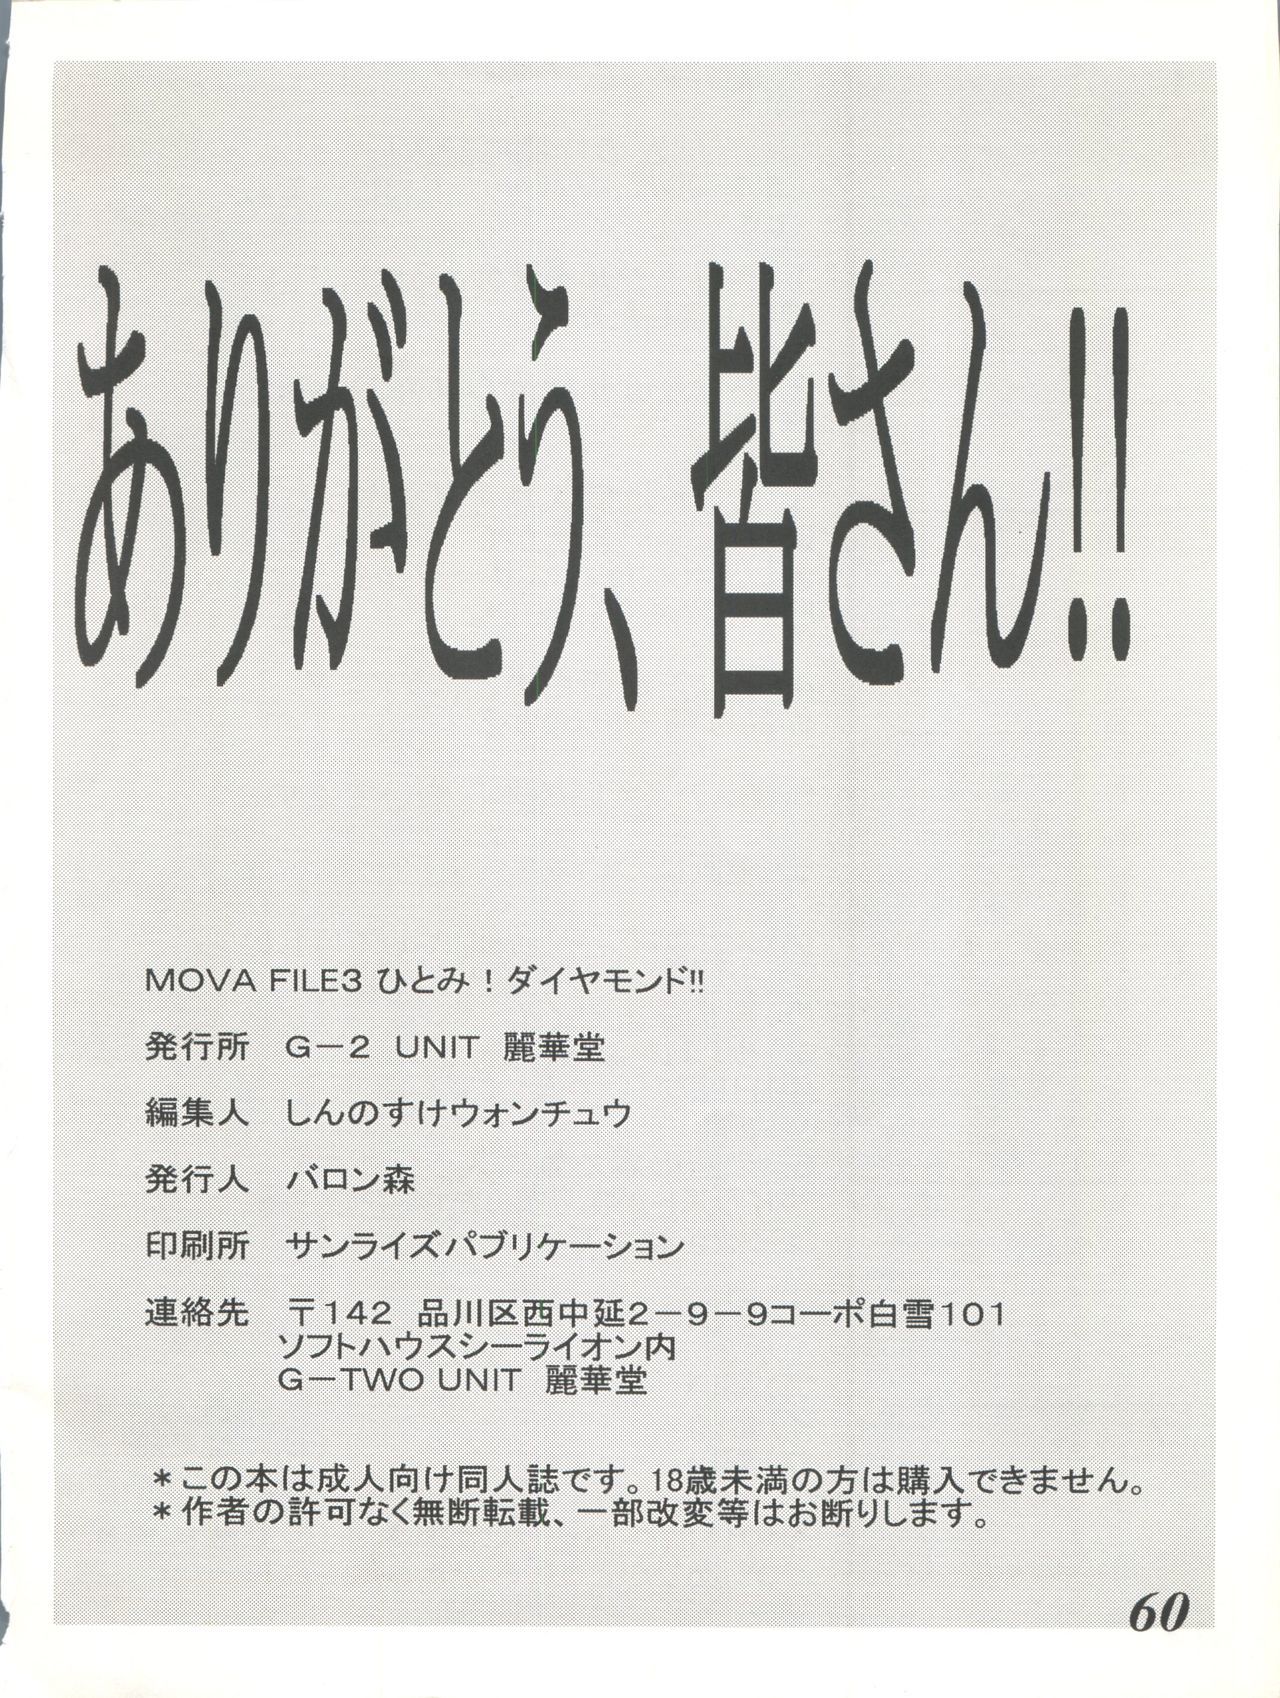 ありがとう、皆さん!!
MOVA FILE3 ひとみ！ダイヤモンド!!
発行所　G－2 UNIT 麗華堂
編集人　しんのすけウォンチュウ
発行人　バロン森
印刷所　サンライズパブリケーション
連絡先　〒142 品川区西中延2－9－9コーポ白雪101
ソフトハウスシーライオン内
G－TWO UNIT 麗華堂
＊この本は成人向け同人誌です。18歳未満の方は購入できません。
＊作者の許可なく無断転載、一部改変等はお断りします。
60